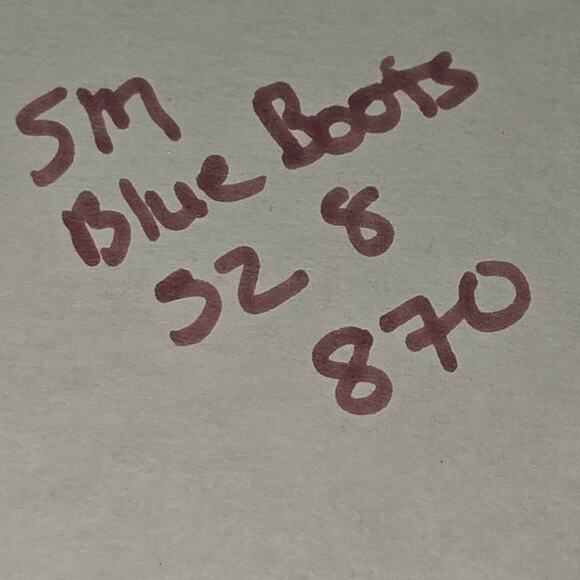 SM
Blue Boots
SZ 8
870